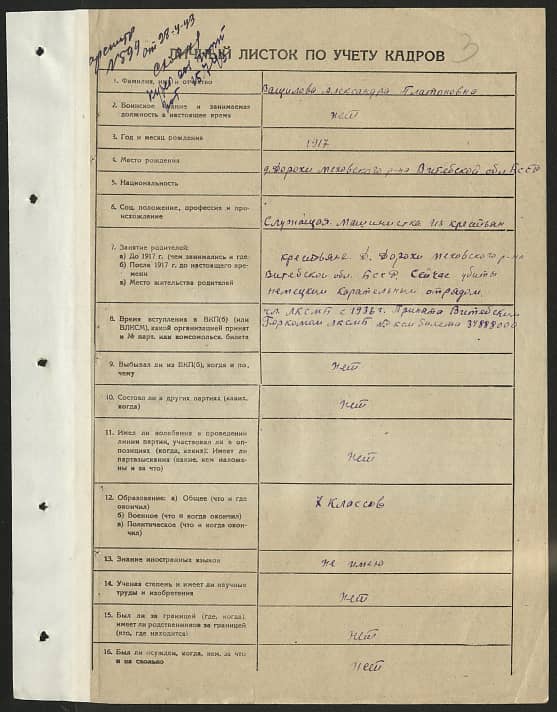 № 599
от 28-4-43
3
ЛИЧНЫЙ ЛИСТОК ПО УЧЕТУ КАДРОВ
1. Фамилия, имя и отчество
Ващилова Александра Платоновна
2. Воинское звание и занимаемая
должность в настоящее время
нет
3. Год и месяц рождения
1917
4. Место рождения
д. Дорохи Меховского р-на Витебской обл. БССР
5. Национальность
6. Соц. положение, профессия и про-
исхождение
Служащая. Машинистка из крестьян
7. Занятие родителей:
а) До 1917 г. (чем занимались и где)
б) После 1917 г. до настоящего вре-
мени
в) Место жительства родителей
крестьяне д. Дорохи Меховского р-на
Витебской обл. БССР. Сейчас убиты
немецким карательным отрядом.
8. Время вступления в ВКП(б) (или
ВЛКСМ), какой организацией принят
и № парт. или комсомольск. билета
чл. ЛКСМБ с 1936 г. Принята Витебским
Горкомом ЛКСМБ № ком билета 34888000
9. Выбывал ли из ВКП(б), когда и по-
чему
нет
10. Состоял ли в других партиях (каких,
когда)
нет
11. Имел ли колебания в проведении
линии партии, участвовал ли в оп-
позициях (когда, каких). Имеет ли
партвзыскания (какие, кем наложе-
ны и за что)
нет
12. Образование: а) Общее (что и где
окончил)
б) Военное (что и когда окончил)
в) Политическое (что и когда окон-
чил)
X классов
13. Знание иностранных языков
не имею
14. Ученая степень и имеет ли научные
труды и изобретения
нет
15. Был ли за границей (где, когда),
имеет ли родственников за границей
(кто, где находится)
нет
16. Был ли осужден, когда, кем, за что
и на сколько
нет